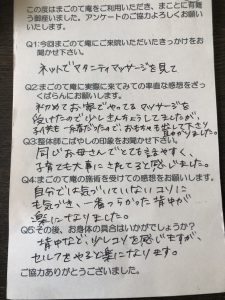 この度はまごのて庵をご利用いただき、まことに有難う
御座いました。アンケートのご協力よろしくお願い
いたします。
Q1:今回まごのて庵にご来院いただいたきっかけをお
聞かせ下さい。
ネットでマタニティマッサージを見て
Q2:まごのて庵に実際に来てみての率直な感想をざっ
くばらんにお願いします。
初めてお腹でマッサージを
受けたので少しきんちょうしてましたが、
子供も一緒だったので、おもちゃも出して下さり
良かったです。
Q3:整体師こばやしの印象をお聞かせ下さい。
同じお母さんでとても話やすく、
子育ても大事にされてると感じました。
Q4:まごのて庵の施術を受けての感想をお願いします。
自分でも気づいていないコリに
も気づき、一番つらかった背中が
楽になりました。
Q5:その後、お身体の具合はいかがでしょうか?
背中など、少しコリを感じますが、
セルフをやると楽になります。
ご協力ありがとうございました。